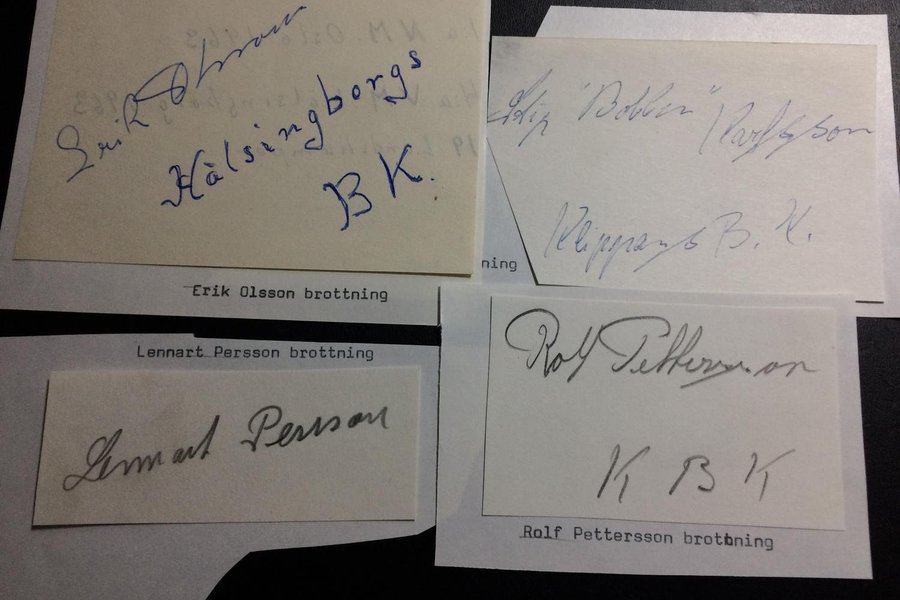 Erik Olsson
Hälsingborgs
BK.
Erik Olsson brottning
"Bobben" Karlsson
Klippans B. K.
ning
Lennart Persson brottning
Lennart Persson
Rolf Pettersson
K B K
Rolf Pettersson brottning